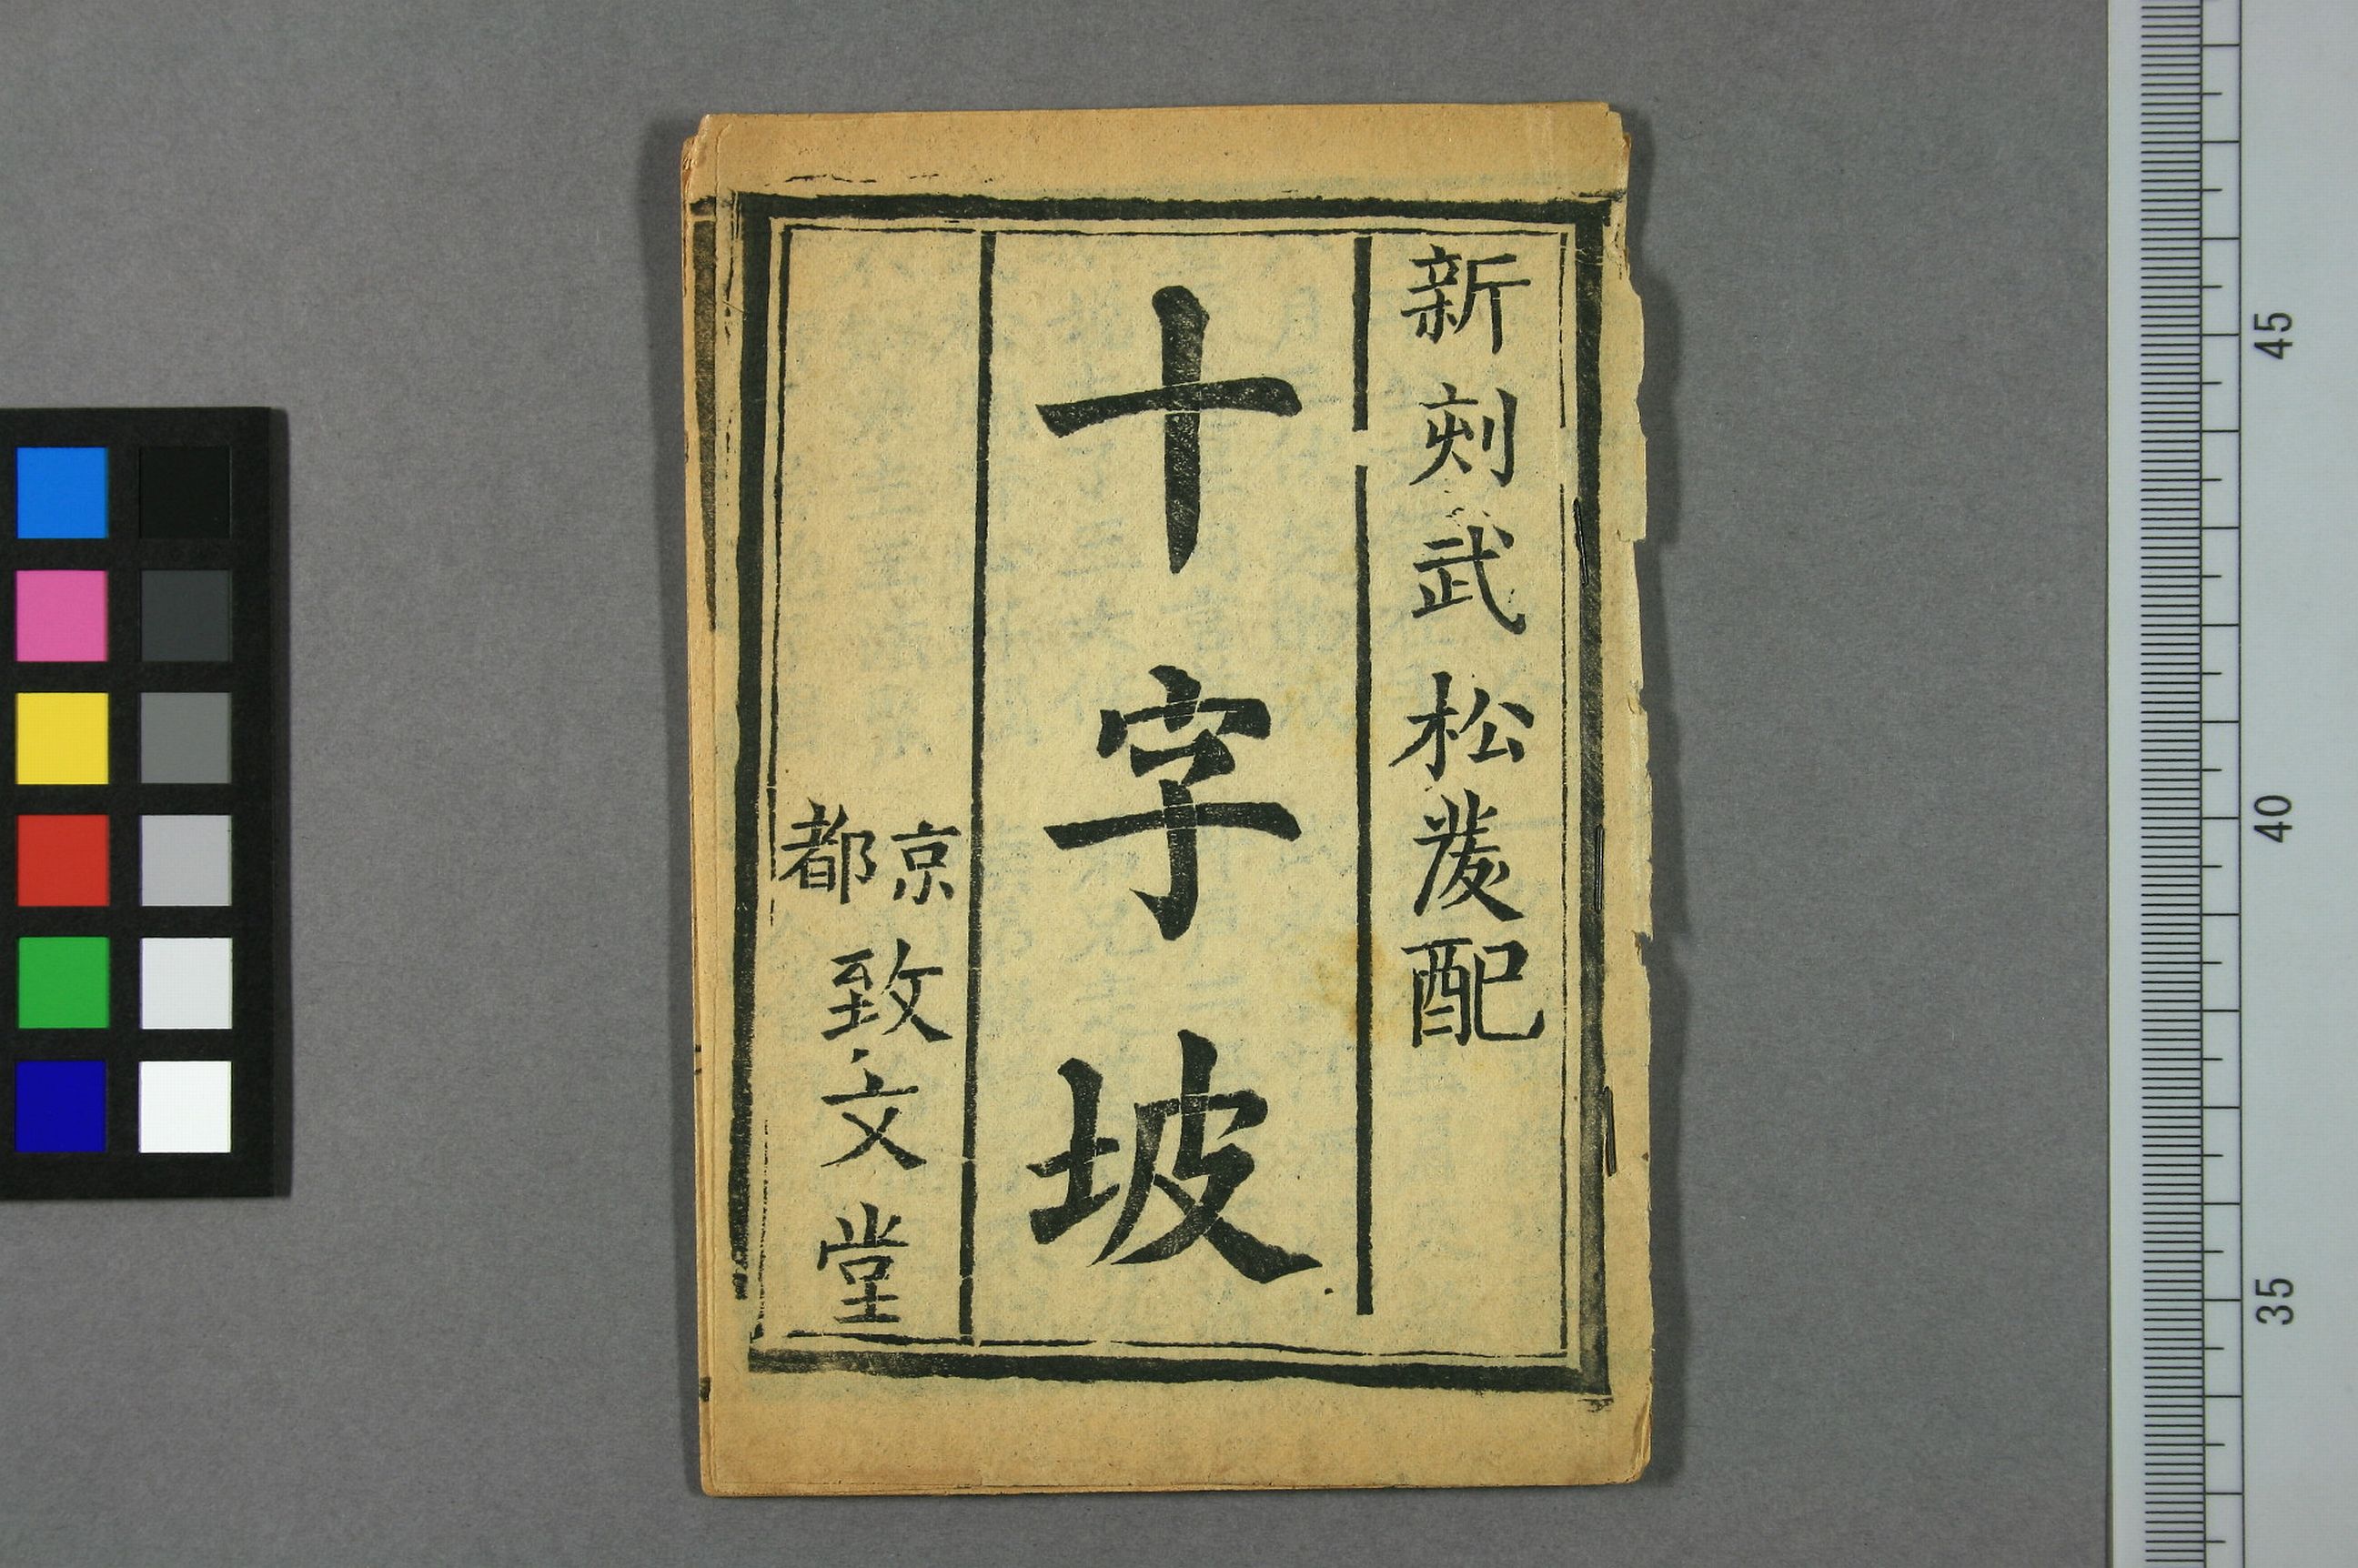 新刻武松發配
十字坡
京都
致文堂
45
40
35